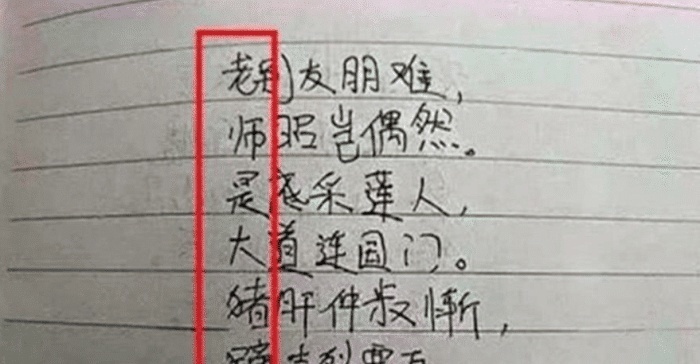 老到友朋难，
师昭岂偶然。
是底采莲人，
大道连国门。
猪肝仲叔惭，